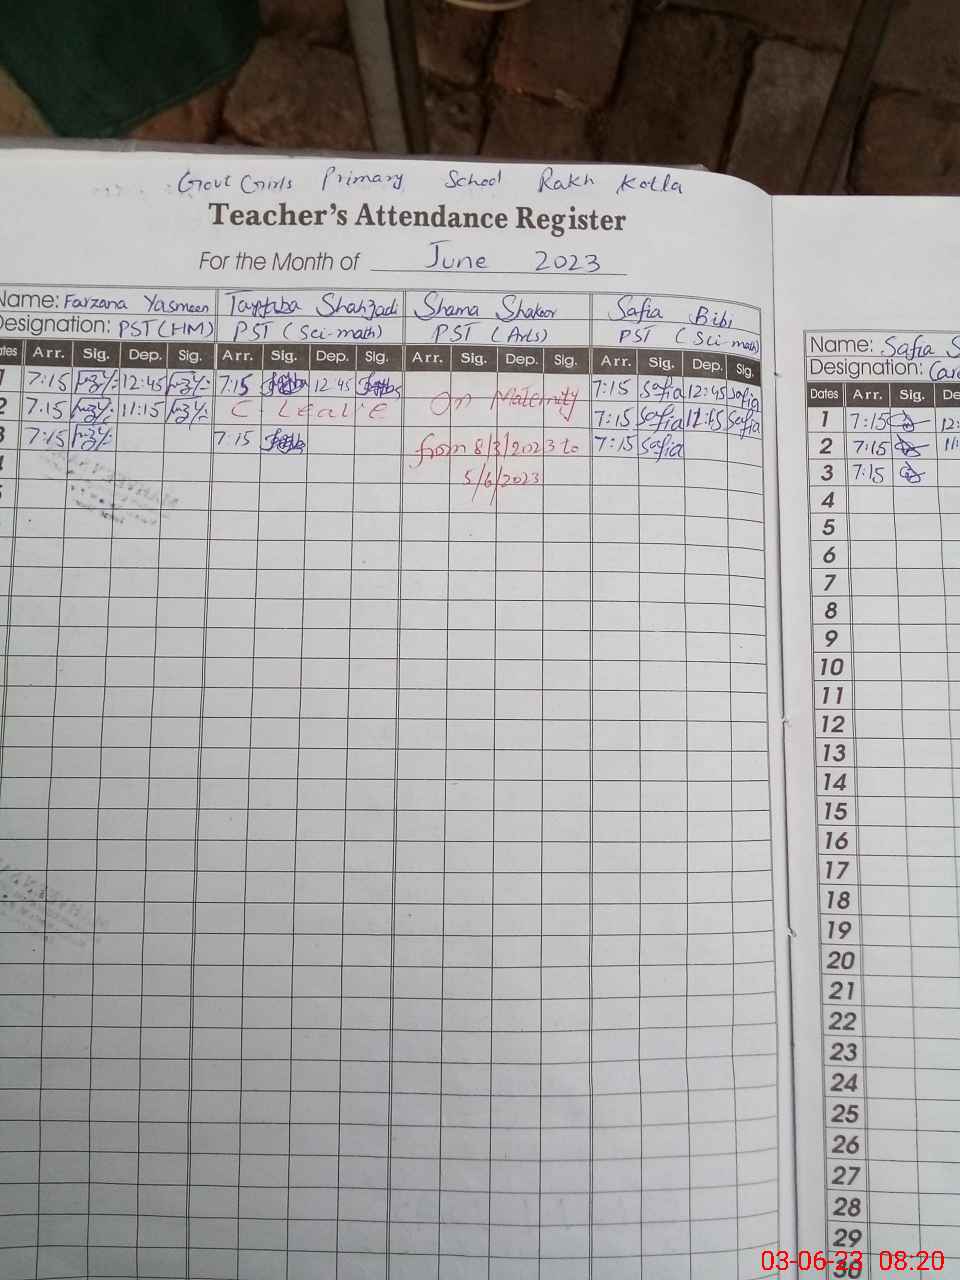 Govt Girls Primary School Rakh Kolla
Teacher's Attendance Register
For the Month of June 2023
Name: Farzana Yasmeen Tayyaba Shahzadi Shama Shakoor Safia Bibi
Designation: PST (HM) PST (Sci-math) PST (Arts) PST (Sci-math)
Dates Arr. Sig. Dep. Sig. Arr. Sig. Dep. Sig. Arr. Sig. Dep. Sig. Arr. Sig. Dep. Sig.
1 7:15 12:45 7:15 12:45 On Maternity 7:15 Safia 12:45 Safia
2 7:15 11:15 C. Leave 7:15 Safia Safia
3 7:15 7:15 from 8/3/2023 to 7:15 Safia
5/6/2023
Name: Safia S
Designation: Car
Dates Arr. Sig. De
1 7:15 12:
2 7:15 11:
3 7:15
4
5
6
7
8
9
10
11
12
13
14
15
16
17
18
19
20
21
22
23
24
25
26
27
28
29
30
03-06-23 08:20